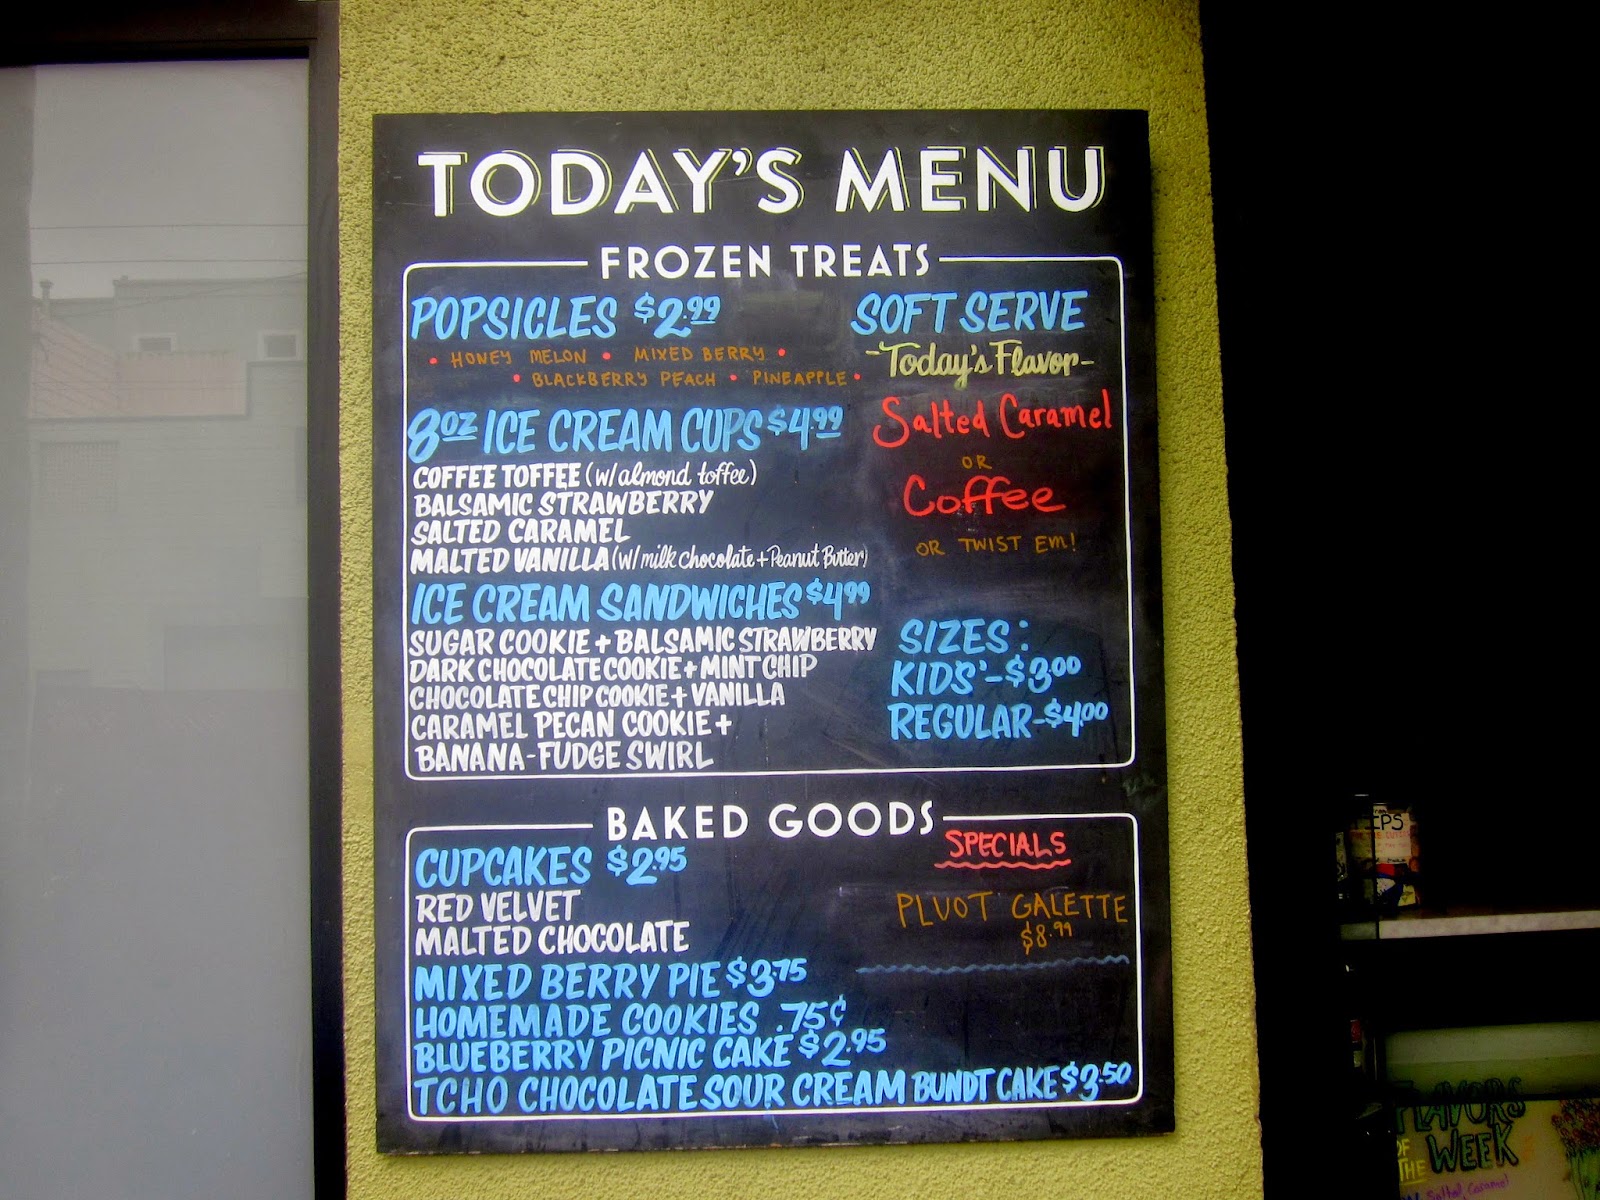 TODAY'S MENU
FROZEN TREATS
POPSICLES $2.99
• HONEY MELON • MIXED BERRY •
• BLACKBERRY PEACH • PINEAPPLE •
8OZ ICE CREAM CUPS $4.99
COFFEE TOFFEE (w/almond toffee)
BALSAMIC STRAWBERRY
SALTED CARAMEL
MALTED VANILLA (w/ milk chocolate + Peanut Butter)
ICE CREAM SANDWICHES $4.99
SUGAR COOKIE + BALSAMIC STRAWBERRY
DARK CHOCOLATE COOKIE + MINT CHIP
CHOCOLATE CHIP COOKIE + VANILLA
CARAMEL PECAN COOKIE +
BANANA-FUDGE SWIRL
SOFT SERVE
-Today's Flavor-
Salted Caramel
OR
Coffee
OR TWIST EM!
SIZES:
KIDS'-$3.00
REGULAR-$4.00
BAKED GOODS
CUPCAKES $2.95
RED VELVET
MALTED CHOCOLATE
MIXED BERRY PIE $3.75
HOMEMADE COOKIES .75¢
BLUEBERRY PICNIC CAKE $2.95
TCHO CHOCOLATE SOUR CREAM BUNDT CAKE $3.50
SPECIALS
PLUOT GALETTE
$8.99
FLAVORS
OF THE WEEK
Salted Caramel